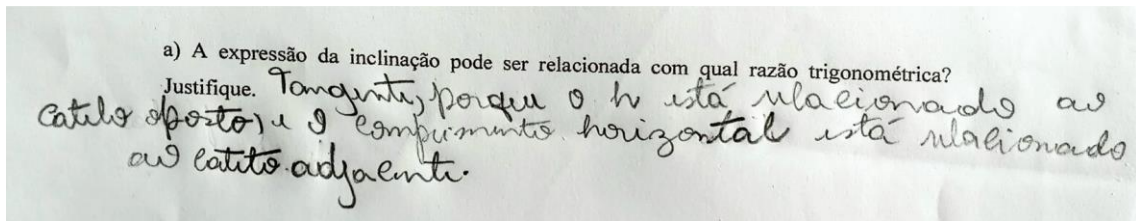 a) A expressão da inclinação pode ser relacionada com qual razão trigonométrica?
Justifique. Tangente, porque o h está relacionado ao
cateto oposto, e o comprimento horizontal está relacionado
ao cateto adjacente.